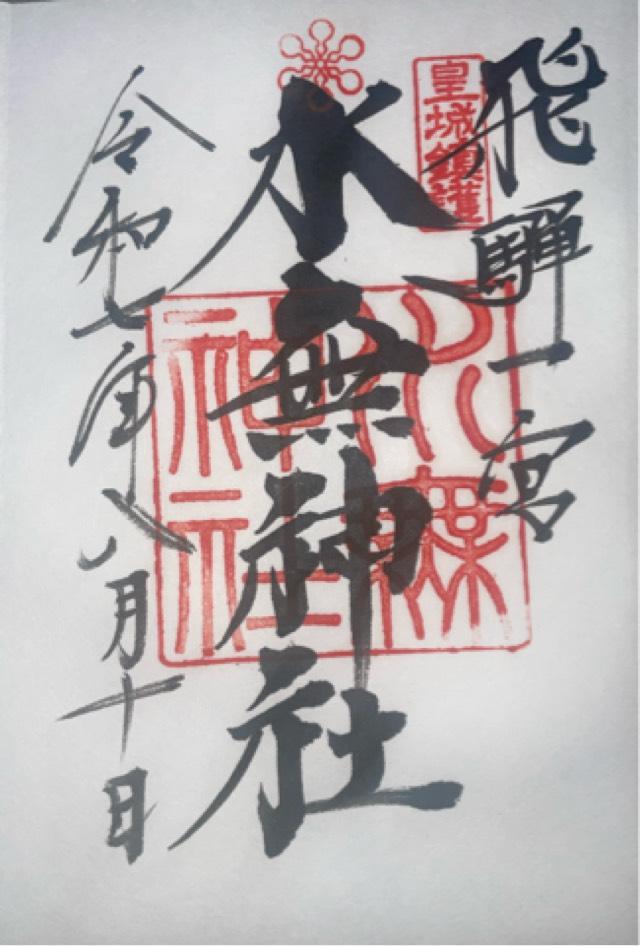 飛騨一宮
皇城鎮護
水無神社
水無神社
令和七年八月十日